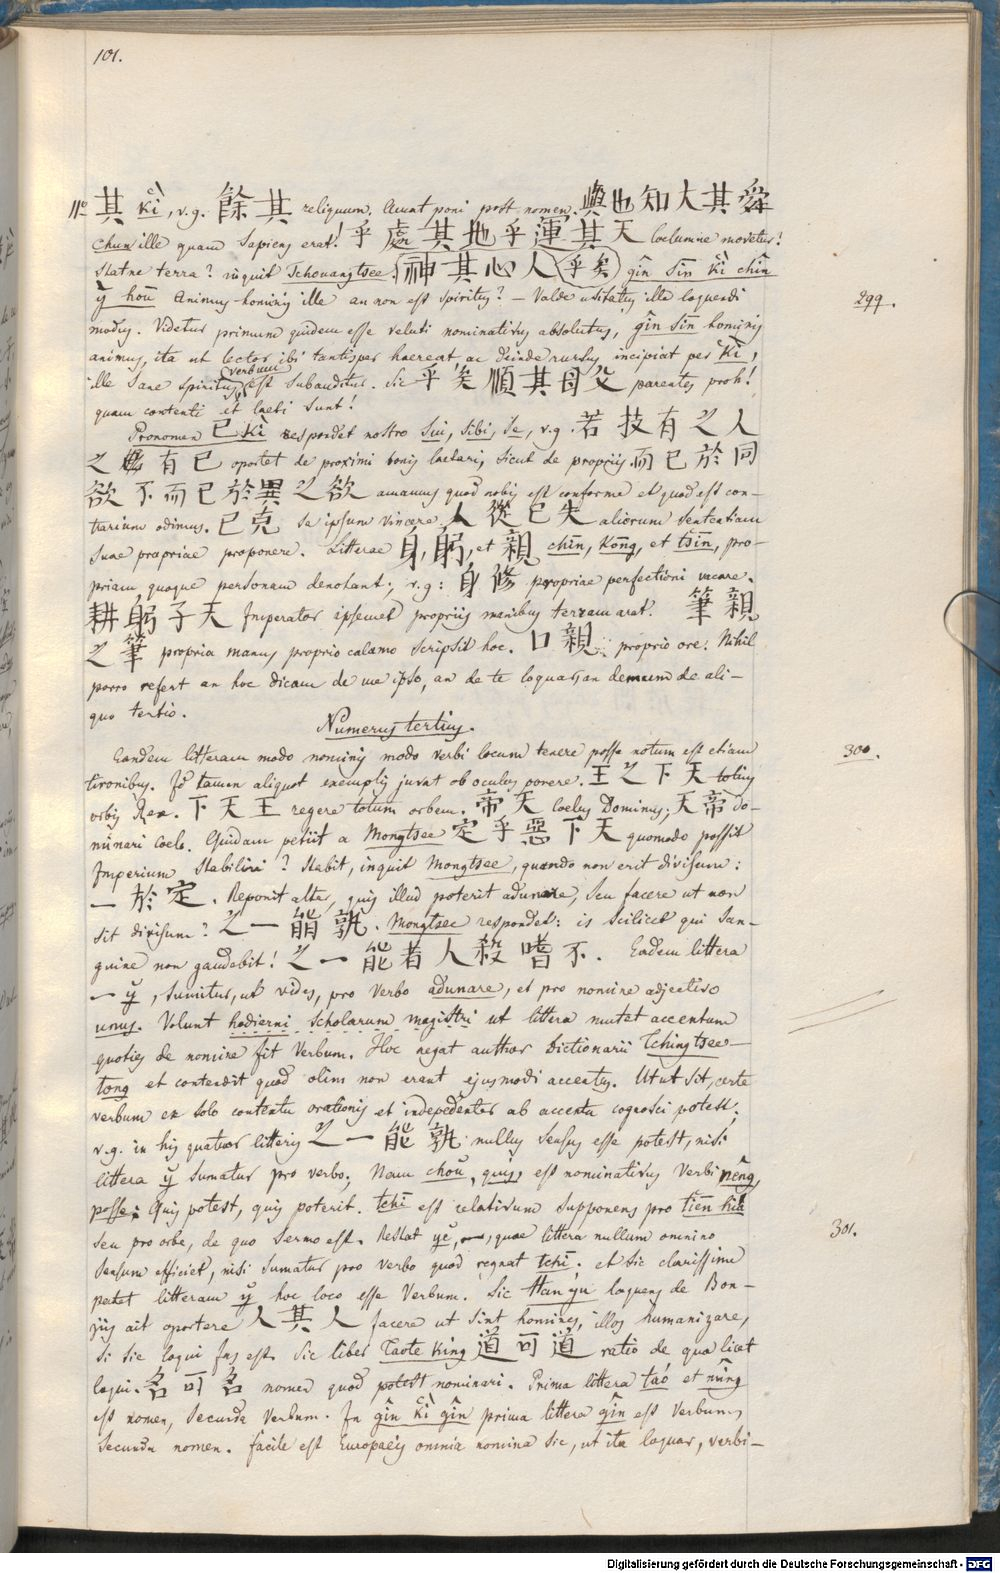 101.
11º 其 Kî, v.g. 餘其 reliquum. Aiunt poni post nomen. 與也知大其舜
Chun ille quam sapiens erat! 乎處其地乎運其天 Coelumne movetur?
Statne terra? inquit Tchouangtsee. 神其心人乎矣 gîn sin Kî chîn
ỳ hoû Animus hominis ille an non est Spiritus? — Valde usitatus ille loquendi
299.
modus. Videtur primum quidem esse veluti nominativus absolutus, gîn sin hominis
animus, ita ut lector ibi tantisper haereat, ac deinde rursus incipiat per Kî,
verbum
ille sane Spiritus est subauditur. Sic 乎矣順其母父 parentes proh!
quam contenti et laeti sunt!
Pronomen 已 Kì respondet nostro Sui, Sibi, Se, v.g. 若技有之人
之 有已 oportet de proximi bonis laetari, sicut de propriis 而已於同
欲不而已於異之欲 amamus quod nobis est conforme et quod est con-
trarium odimus. 已克 Se ipsum vincere, 人從已失 aliorum sententiam
suae propriae proponere. Litterae 身, 躬, et 親 chin, Kong, et tsin, pro-
priam quoque personam denotant; v.g: 身修 propriae perfectioni vacare.
耕躬子天 Imperator ipsemet propriis manibus terram arat. 筆親
之筆 propria manus proprio calamo scripsit hoc. 口親 proprio ore. Nihil
porro refert an hoc dicam de me ipso, an de te loquar, an demum de ali-
quo tertio.
Numerus tertius.
Eandem litteram modo nominis modo verbi locum tenere posse notum est etiam
300.
tironibus. Id tamen aliquot exemplis juvat ob oculos ponere. 王之下天 totius
orbis Rex. 下天王 regere totum orbem. 帝天 Coelus Dominus; 天帝 do-
minari Coelo. Quidam petiit a Mongtsee 定乎惡下天 quomodo possit
Imperium stabiliri? Stabit, inquit Mongtsee, quando non erit divisum:
一於定. Reponit alter, quis illud poterit adunare, seu facere ut non
sit divisum? 之一能孰. Mongtsee respondet: is scilicet qui san-
guine non gaudebit! 之一能者人殺嗜不. Eadem littera
一 ỹ, sumitur, ut vides, pro verbo adunare, et pro nomine adjectivo
unus. Volunt hodierni scholarum magistri ut littera mutet accentum
quoties de nomine fit verbum. Hoc negat author Dictionarii Tchingtsee-
tong et contendit quod olim non erant ejusmodi accentus. Utut sit, certe
verbum ex solo contextu orationis et indepedenter ab accentu cognosci potest;
v.g. in his quatuor litteris 之一能孰 nullus sensus esse potest, nisi
littera ỹ sumatur pro verbo; Nam choû, quis, est nominativus verbi nêng,
posse: Quis potest, quis poterit. tchī est relativum supponens pro tien hia
301.
seu pro orbe, de quo sermo est. Restat ye, quae littera nullum omnino
sensum efficiet, nisi sumatur pro verbo quod regnat tchī. et sic clarissime
patet litteram ỹ hoc loco esse verbum. Sic Han yu loquens de Bon-
ziis ait oportere 人其人 facere ut sint homines, illos humanizare,
si sic loqui fas est. Sic liber Taote King 道可道 ratio de qua licet
loqui. 名可名 nomen quod potest nominari. Prima littera táo et mîng
est nomen, secunda verbum. In gîn Kî gîn prima littera gîn est verbum,
secunda nomen. Facile est Europaeis omnia nomina sic, ut ita loquar, verbi-
Digitalisierung gefördert durch die Deutsche Forschungsgemeinschaft - DFG